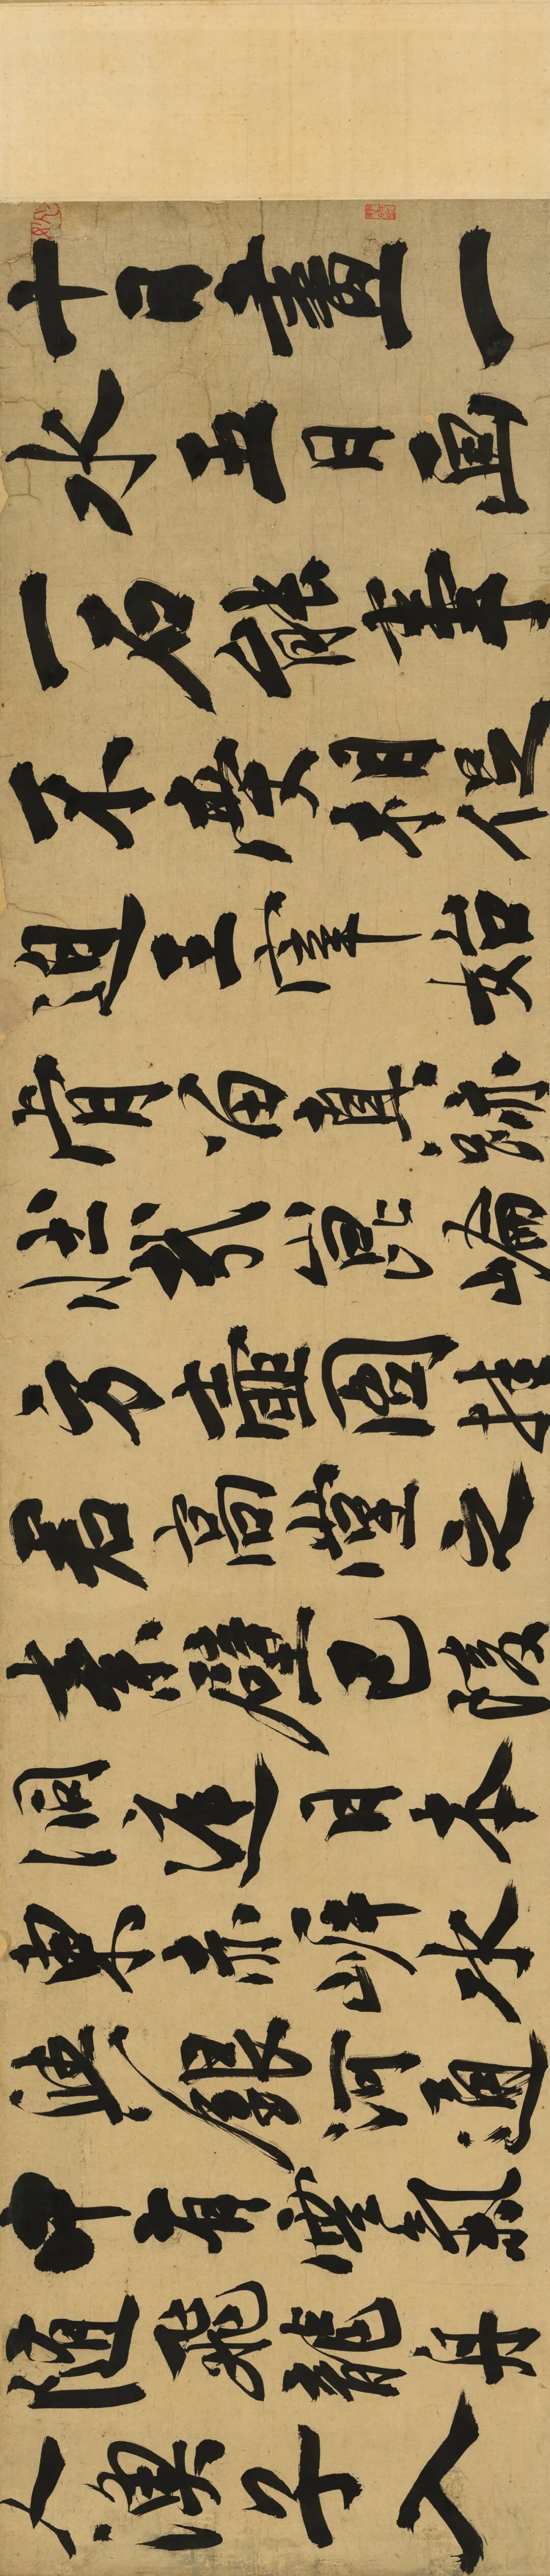 十日畫一
水五日画
一石能事
不受相促
迫王宰始
肯留真跡
壯哉崐崘
方壺圖挂
君高堂之
素壁巴陵
洞庭日本
東赤岸水
與銀河通
中有雲氣
隨飛龍舟
人漁子入